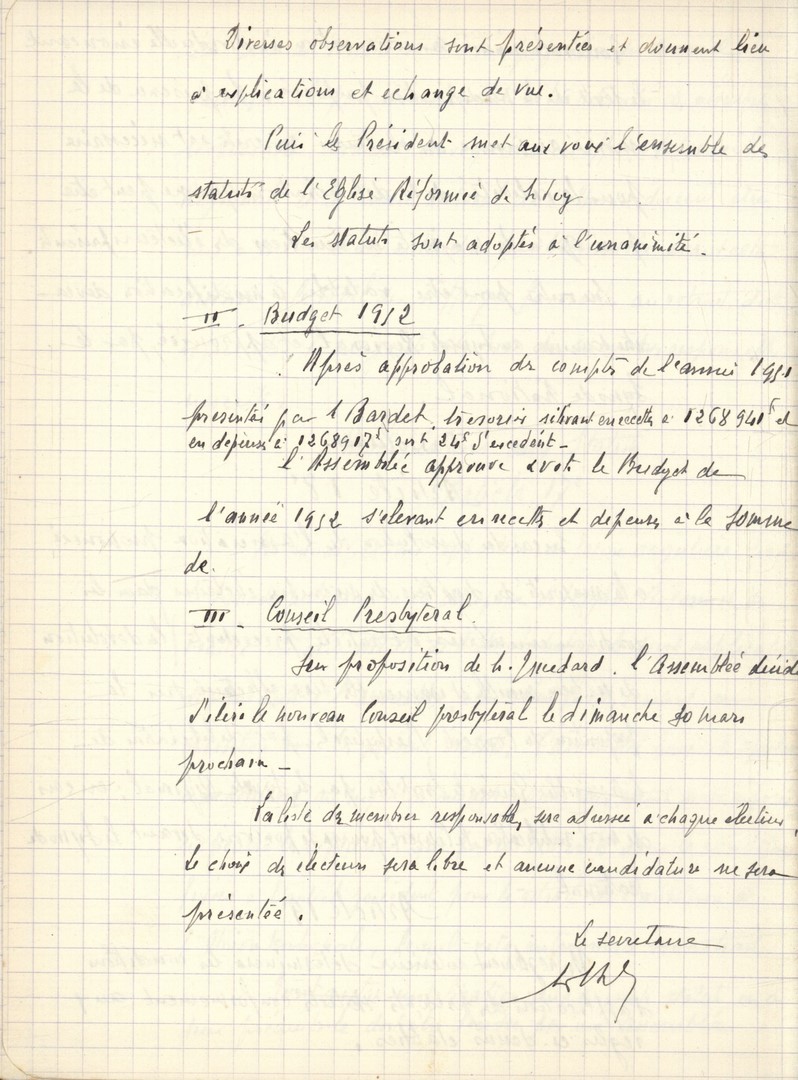 Diverses observations sont présentées et donnent lieu
à explications et echange de vue.
Puis le Président met aux voix l'ensemble des
statuts de l'Eglise Réformée de
Les statuts sont adoptés à l'unanimité.
II. Budget 1952
Après approbation des comptes de l'année 1951
présentés par M Bardet, trésorier s'élevant en recettes à 1268941f et
en depenses à 1268917f soit 24f d'excédent -
l'Assemblée approuve le Budget de
l'année 1952 s'élevant en recettes et depenses à la somme
de
III - Conseil Presbytéral.
Sur proposition de M. l'Assemblée décide
d'élire le nouveau Conseil presbytéral le dimanche 30 mars
prochain -
La liste des membres responsables sera adressée à chaque électeur,
Le choix des électeurs sera libre et aucune candidature ne sera
présentée.
Le secretaire